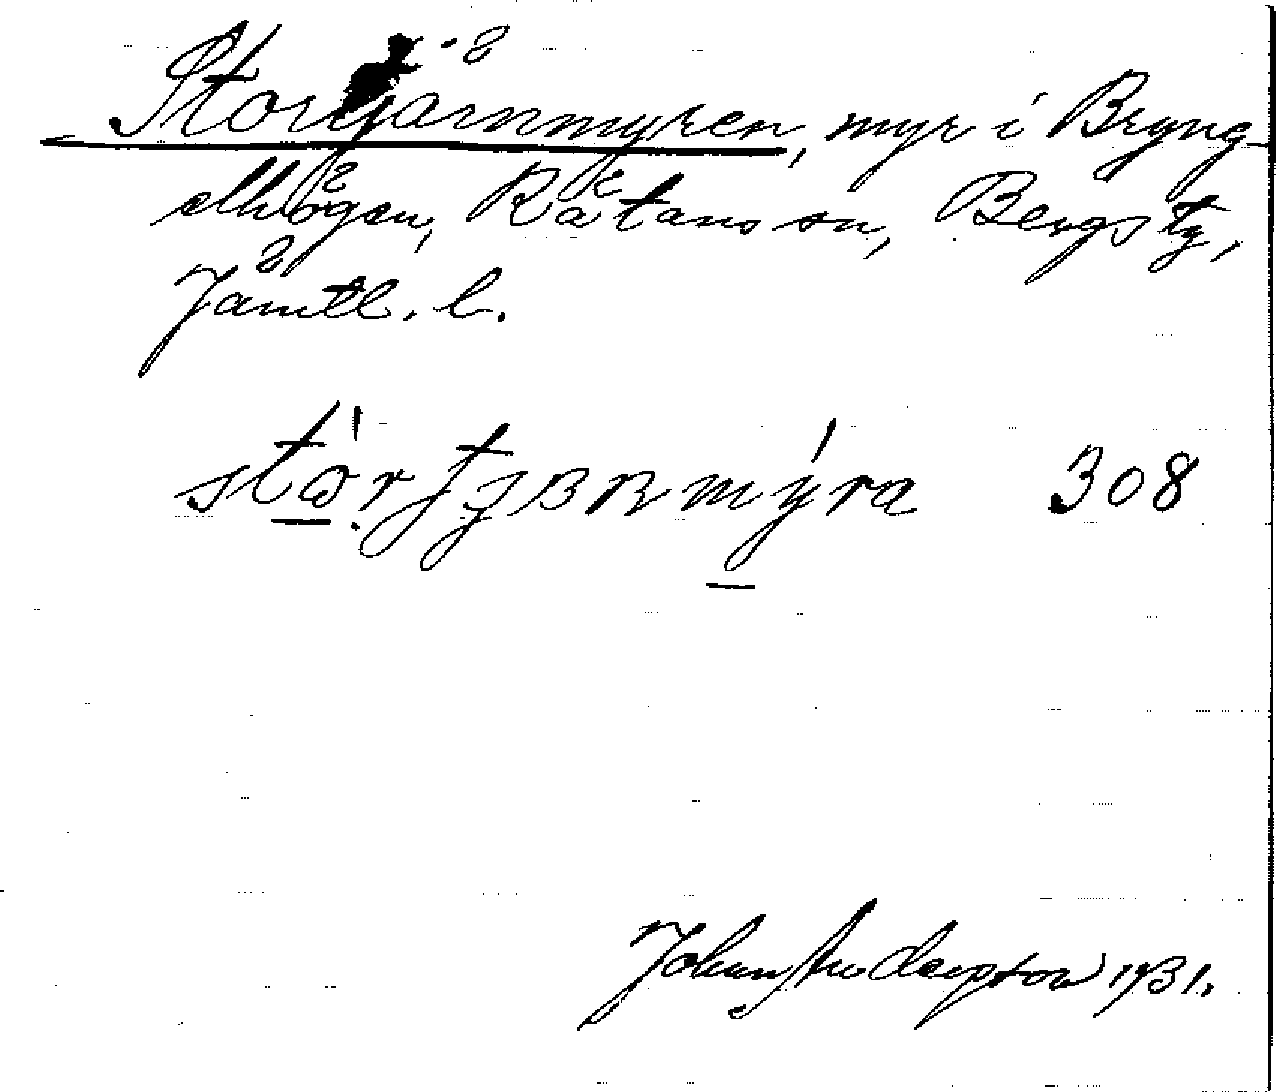 Stortjärnmyren, myr i Bryng-
elhögen, Rätans sn, Bergs tg,
Jämtl. l.
308
John Anderson 1931.